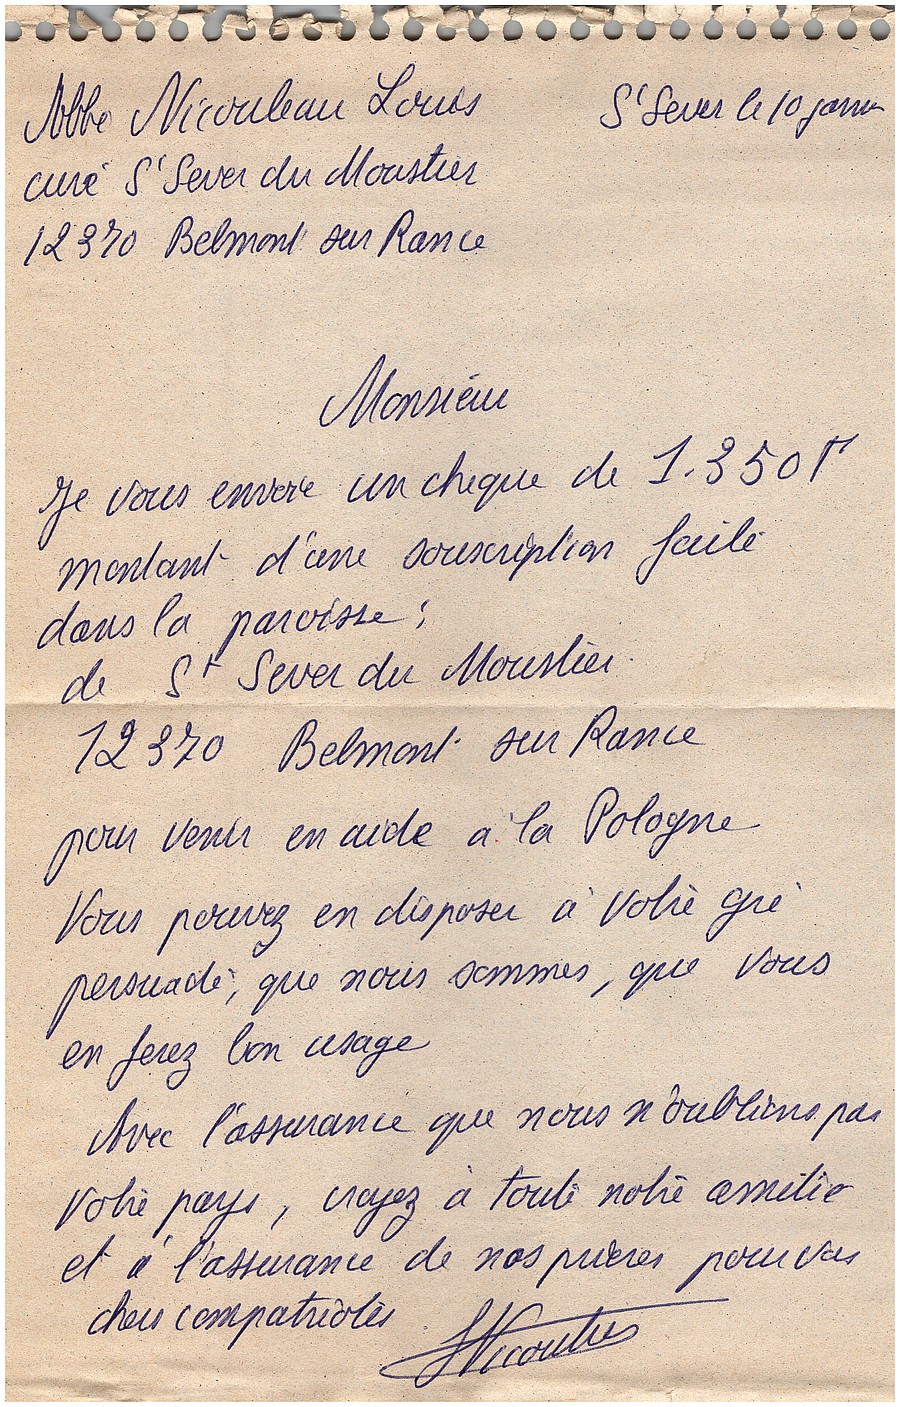 Abbé Nicouleau Louis
St Sever le 10 janvier
curé St Sever du Moustier
12370 Belmont sur Rance
Monsieur
Je vous envoie un cheque de 1.350 F
montant d'une souscription faite
dans la paroisse :
de St Sever du Moustier
12370 Belmont sur Rance
pour venir en aide à la Pologne
Vous pouvez en disposer à votre gré
persuadé, que nous sommes, que vous
en ferez bon usage
Avec l'assurance que nous n'oublions pas
votre pays, croyez à toute notre amitié
et à l'assurance de nos prières pour vos
chers compatriotes